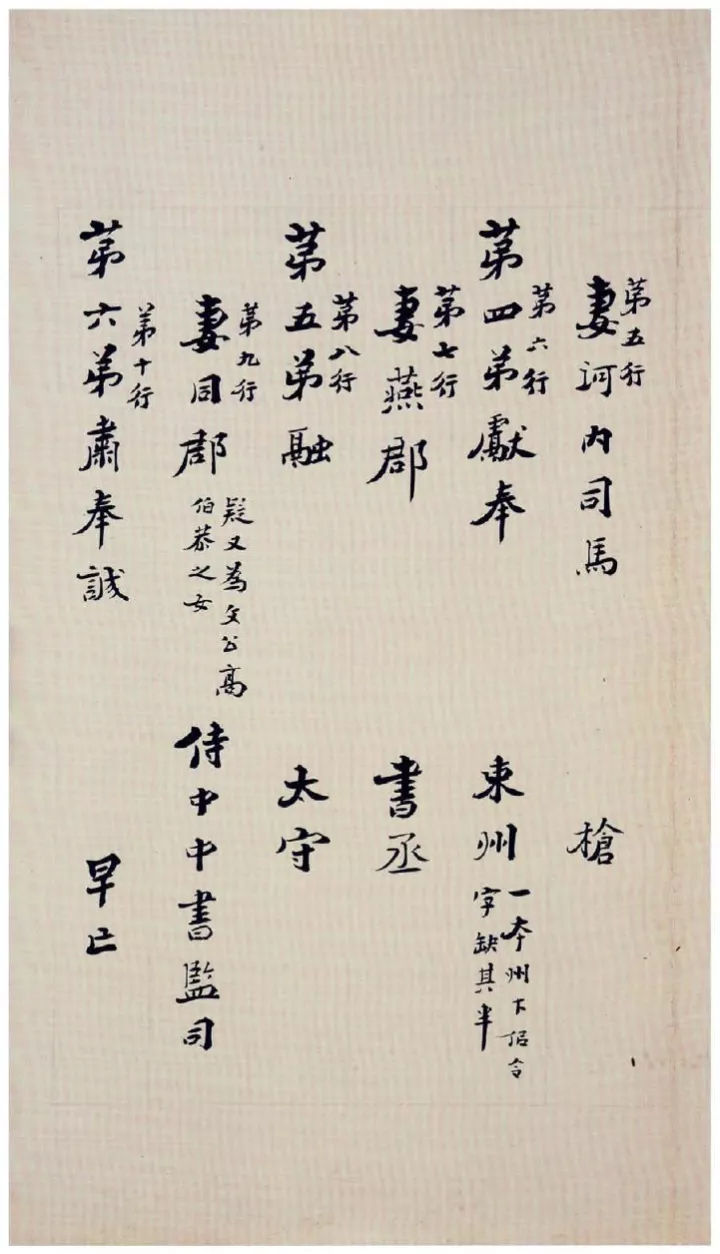 第五行
妻河内司馬 槍
第六行
第四弟獻奉 東州
一本州下侶令
字缺其半
第七行
妻燕郡 書丞
第八行
第五弟融 太守
第九行
妻同郡
疑又為文公高
伯恭之女
侍中中書監司
第十行
第六弟肅奉誠 早亡